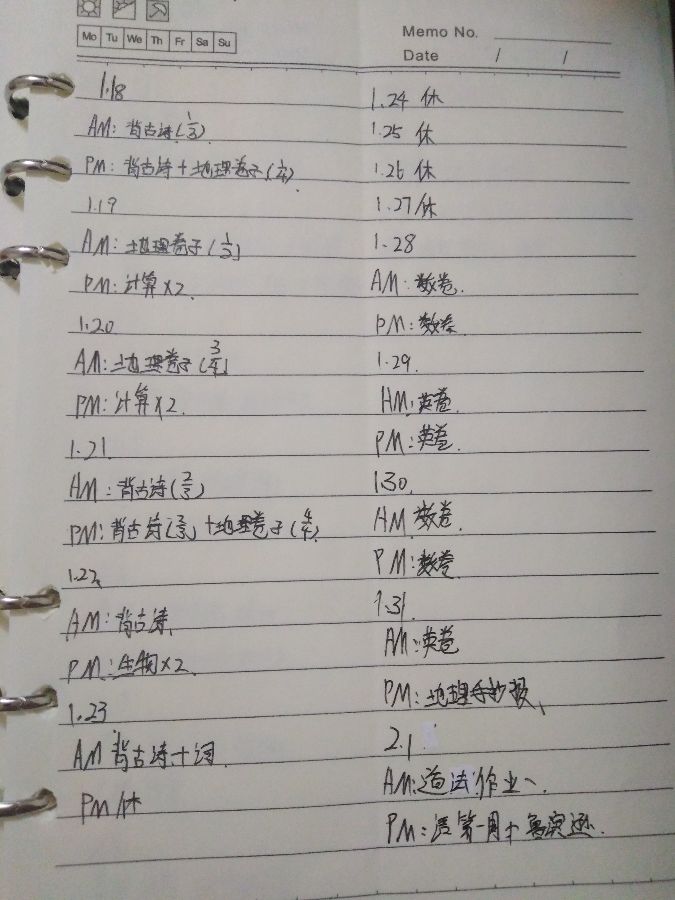 Mo Tu We Th Fr Sa Su
Memo No.
Date / /
1.18
AM: 背古诗(1/3)
PM: 背古诗+地理卷子(1/4)
1.19
AM: 地理卷子(1/2)
PM: 计算×2.
1.20
AM: 地理卷子(3/4)
PM: 计算×2.
1.21
AM: 背古诗(2/3)
PM: 背古诗(2/3)+地理卷子(4/4)
1.22
AM: 背古诗
PM: 生物×2.
1.23
AM 背古诗十词.
PM 休
1.24 休
1.25 休
1.26 休
1.27 休
1.28
AM: 数卷.
PM: 数卷.
1.29.
AM: 英卷.
PM: 英卷.
1.30.
AM 数卷.
PM: 数卷
1.31.
AM: 英卷
PM: 地理手抄报、
2.1
AM: 道法作业一.
PM: 第一周+鲁滨逊.